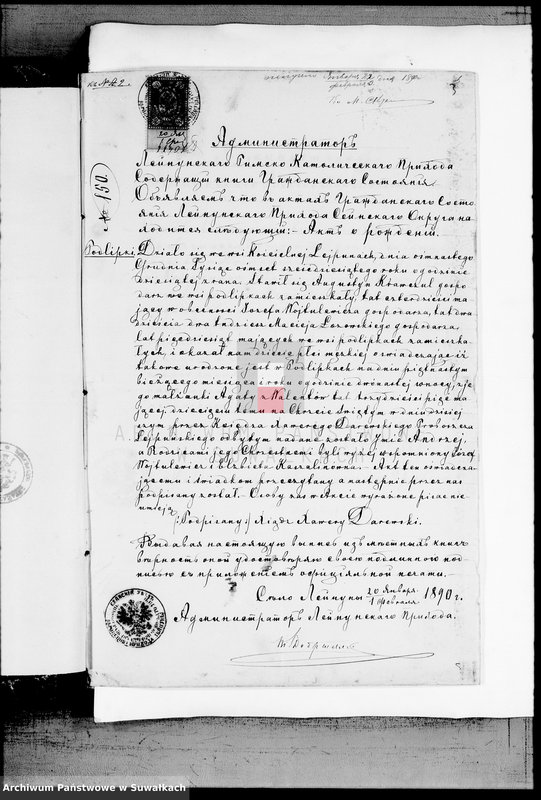 къ № 42.
1890
Администраторъ
Лейпунскаго Римско Католическаго Прихода
Содержащи книги Гражданскаго Состоянія
Объявляемъ что въ актахъ Гражданскаго Состо-
янія Лейпунскаго Прихода Сейнскаго Округа на-
ходится слѣдующій:- Актъ о рожденіи.
№ 150.
Podlipki. Działo się we wsi Kościelnej Lejpunach, dnia ośmnastego
Grudnia Tysiąc ośmset sześćdziesiątego roku o godzinie
dziesiątej z rana. Stawił się Augustyn Krawczul gospo
darz we wsi Podlipkach zamieszkały, lat czterdzieści ma
jący w obecności Józefa Wojtulewicza gospodarza, lat dwa
dzieścia dwa tudzież Macieja gospodarza,
lat pięćdziesiąt mających we wsi podlipkach zamieszka
łych, i okazał nam dziecię płci męskiej oświadczając iż
takowe urodzone jest w Podlipkach na dniu piętnastym
bieżącego miesiąca i roku o godzinie dwónastej w nocy, z je
go małżonki Agaty z Walentów lat trzydzieści pięć ma
jącej. Dziecięciu temu na Chrzcie Świętym w dniu dzisiej
szym przez Księdza Xawerego Darewskiego Proboszcza
Lejpunskiego odbytym nadane zostało Imie Andrzej,
a Rodzicami jego Chrzestnemi byli wyżej wspomniony Józef
Wojtulewicz i Elżbieta Akt ten oświadcza-
jącemu i świadkom przeczytany a następnie przez nas
podpisany został.- Osoby zaś w Akcie wyrażone pisać nie
umieją.
/:Podpisany:/ Xiądz Xawery Darewski.
Выдавая настоящую выпись изъ мѣстныхъ книгъ
вѣрность оной удостовѣряю своею подлинною под-
писью съ приложеніемъ офиціальной печати.-
Село Лейпуны 20 Января / 1 Февраля 1890 г.
Администраторъ Лейпунскаго Прихода.
Archiwum Państwowe w Suwałkach